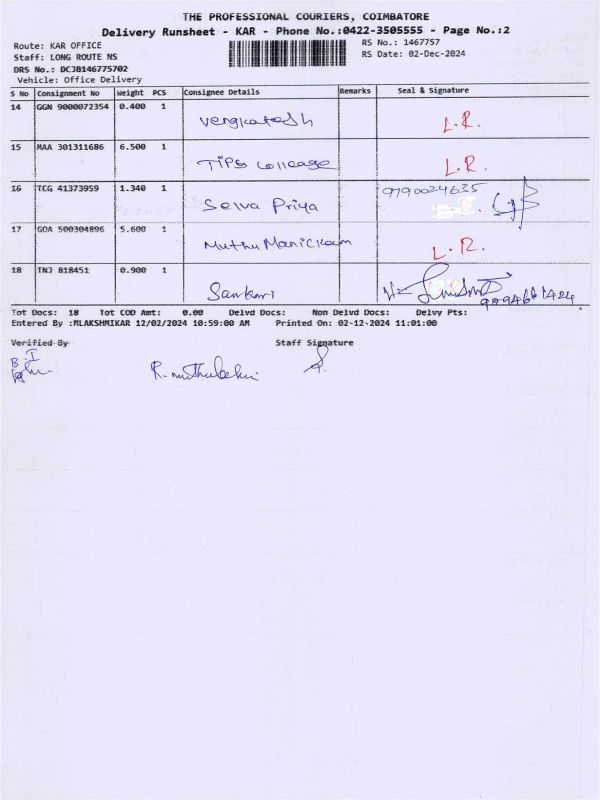 THE PROFESSIONAL COURIERS, COIMBATORE
Delivery Runsheet - KAR - Phone No.:0422-3505555 - Page No.:2
Route: KAR OFFICE
RS No.: 1467757
Staff: LONG ROUTE NS
RS Date: 02-Dec-2024
DRS No.: DCJB146775702
Vehicle: Office Delivery
S No Consignment No Weight PCS Consignee Details Remarks Seal & Signature
14 GGN 9000072354 0.400 1 Vengkatesh L.R.
15 MAA 301311686 6.500 1 TIPS Colleage L.R.
16 TCG 41373959 1.340 1 Selva Priya 9790024635
17 GOA 500304896 5.600 1 Muthu Manickam L.R.
18 TNJ 818451 0.900 1 Sankari
Tot Docs: 18 Tot COD Amt: 0.00 Delvd Docs: Non Delvd Docs: Delvy Pts:
Entered By :MLAKSHMIKAR 12/02/2024 10:59:00 AM Printed On: 02-12-2024 11:01:00
Verified By Staff Signature